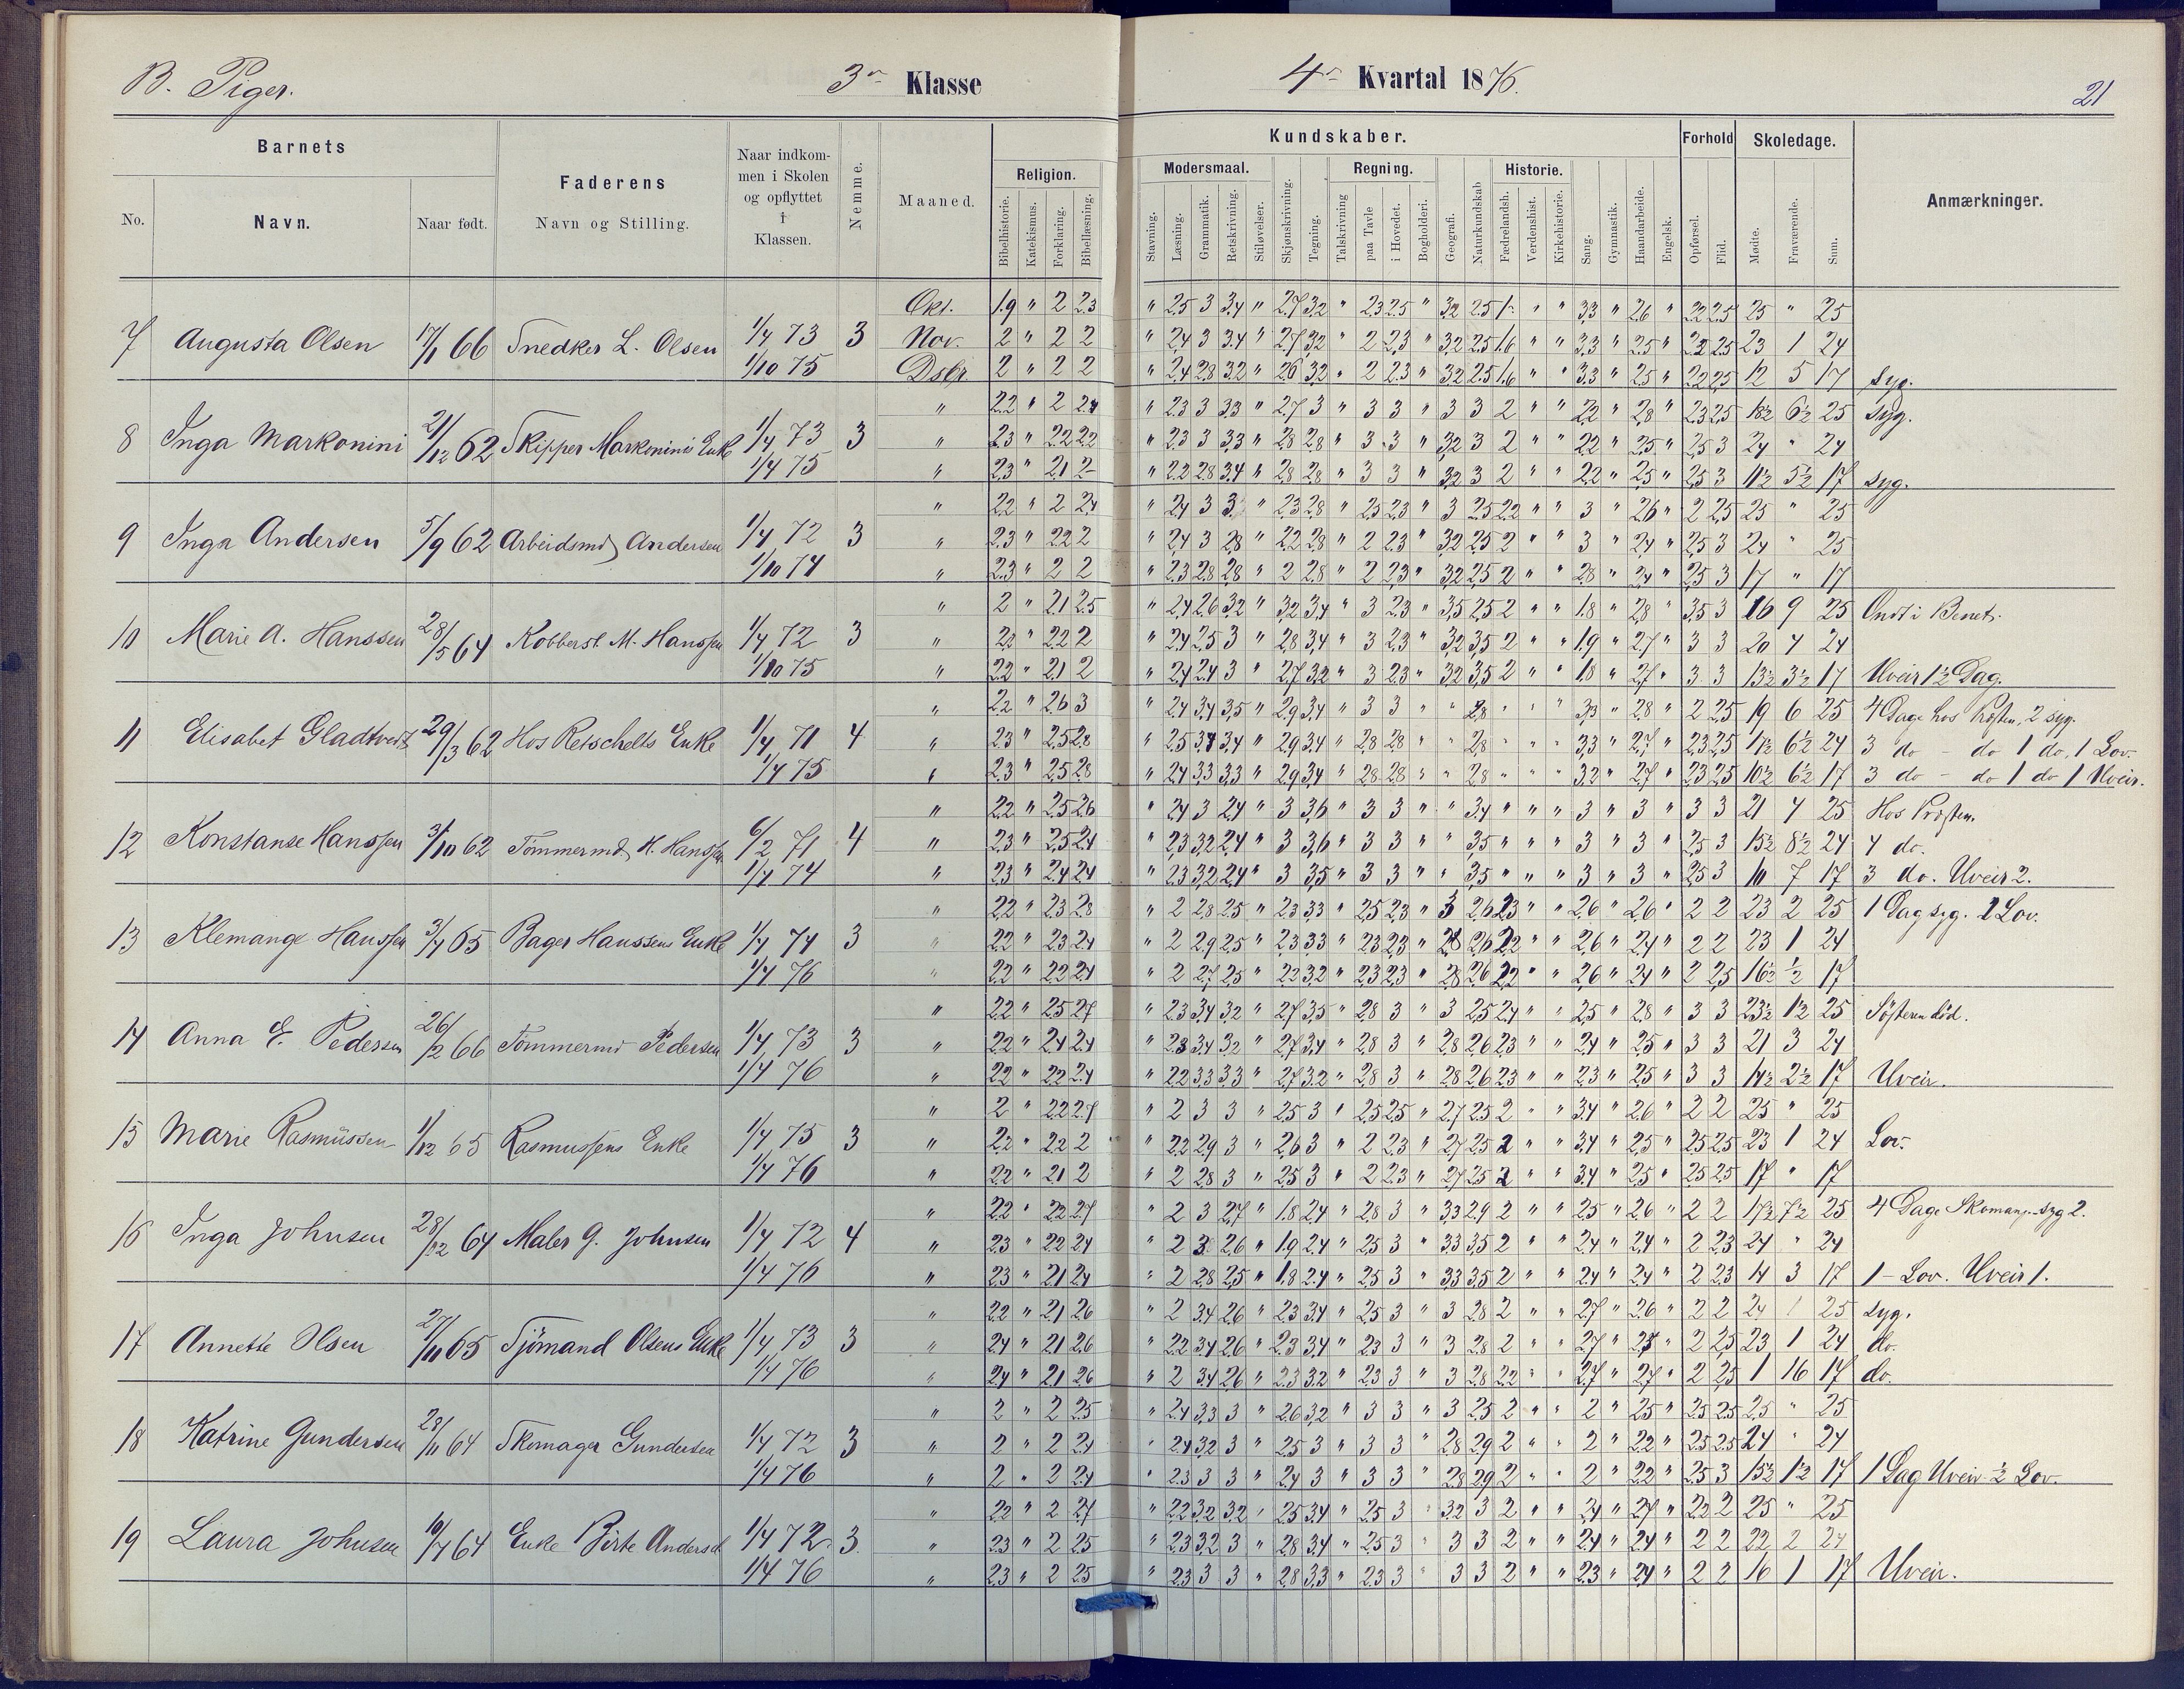 B. Piger.
3die Klasse
4de Kvartal 1876.
21
Barnets
Faderens
Naar indkommen i Skolen og opflyttet i Klassen.
Nemme.
Maaned.
Religion.
Kundskaber.
Forhold
Skoledage.
Anmærkninger.
Modersmaal.
Regning.
Historie.
No.
Navn.
Naar født.
Navn og Stilling.
Bibelhistorie.
Katekismus.
Forklaring.
Bibellæsning.
Stavning.
Læsning.
Grammatik.
Retskrivning.
Stiløvelser.
Skjønskrivning.
Tegning.
Talskrivning
paa Tavle
i Hovedet.
Bogholderi.
Geografi.
Naturkundskab
Fædrelandsh.
Verdenshist.
Kirkehistorie.
Sang.
Gymnastik.
Haandarbeide.
Engelsk.
Opførsel.
Flid.
Mødte.
Fraværende.
Sum.
Okt. 1.9 " 2 2.3 " 2.5 3 3.4 " 2.7 3.2 " 2.3 2.5 " 3.2 2.5 " " 3.3 " 2.6 " 2.2 2.5 25 " 25
7 Augusta Olsen 17/1 66 Snedker L. Olsen 1/4 73 3 Nov. 2 " 2 2 " 2.4 3 3.4 " 2.7 3.2 " 2 2.3 " 3.2 2.5 1.6 " " 3.3 " 2.5 " 2.2 2.5 23 1 24
1/10 75 Dsbr. 2 " 2 2 " 2.4 2.8 3.2 " 2.6 3.2 " 2 2.3 " 3.2 2.5 1.6 " " 3.3 " 2.5 " 2.2 2.5 12 5 17 syg.
" 2.2 " 2 2.4 " 2.3 3 3.3 " 2.7 3 " 3 3 " 3 3 2 " " 2.2 " 2.8 " 2.3 2.5 18½ 6½ 25 syg.
8 Inga Markonini 21/12 62 Skipper Markoninis Enke 1/4 73 3 " 2.3 " 2.2 2.2 " 2.3 3 3.3 " 2.8 2.8 " 3 3 " 3.2 3 2 " " 2.2 " 2.5 " 2.5 3 24 " 24
1/4 75 " 2.3 " 2.1 2 " 2.2 2.8 3.4 " 2.8 2.8 " 3 3 " 3.2 3 2 " " 2.2 " 2.5 " 2.5 3 11½ 5½ 17 syg.
" 2.2 " 2 2.4 " 2.4 3 3 " 2.3 2.8 " 2.5 2.3 " 3 2.5 2.2 " " 3 " 2.6 " 2 2.5 25 " 25
9 Inga Andersen 5/9 62 Arbeidsmd Andersen 1/4 72 3 " 2.3 " 2.2 2 " 2.4 3 2.8 " 2.2 2.8 " 2 2.3 " 3.2 2.5 2 " " 3 " 2.4 " 2.5 3 24 " 25
1/10 74 " 2.3 " 2 2 " 2.3 2.8 2.8 " 2 2.8 " 2 2.3 " 3.2 2.5 2 " " 2.8 " 2.4 " 2.5 3 17 " 17
" 2 " 2.1 2.5 " 2.4 2.6 3.2 " 3.2 3.4 " 3 2.3 " 3.5 2.5 2 " " 1.8 " 2.8 " 3.5 3 16 9 25 Ondt i Benet.
10 Marie A. Hanssen 28/5 64 Kobberst. M. Hanssen 1/4 72 3 " 2.2 " 2.2 2 " 2.4 2.5 3 " 2.8 3.4 " 3 2.3 " 3.2 3.5 2 " " 1.9 " 2.7 " 3 3 20 4 24
1/10 75 " 2.2 " 2.1 2 " 2.4 2.4 3 " 2.7 3.2 " 3 2.3 " 3.2 3.5 2 " " 1.8 " 2.7 " 3 3 13½ 3½ 17 Uveir 1½ Dag.
" 2.2 " 2.6 3 " 2.4 3.4 3.5 " 2.9 3.4 " 3 3 " " 2.8 " " " 3.3 " 2.8 " 2 2.5 19 6 25 4 Dage hos Presten, 2 syg.
11 Elisabet Gladtvedt 29/3 62 Hos Retschelts Enke 1/4 71 4 " 2.3 " 2.5 2.8 " 2.5 3.4 3.4 " 2.9 3.4 " 2.8 2.8 " " 2.8 " " " 3.3 " 2.7 " 2.3 2.5 17½ 6½ 24 3 do - do 1 do, 1 Lov.
1/4 75 " 2.3 " 2.5 2.8 " 2.4 3.3 3.3 " 2.9 3.4 " 2.8 2.8 " " 2.8 " " " 3.2 " 2.7 " 2.3 2.5 10½ 6½ 17 3 do - do 1 do 1 Uveir.
" 2.2 " 2.5 2.6 " 2.4 3 2.4 " 3 3.6 " 3 3 " " 3.4 " " " 3 " 3 " 3 3 21 4 25 Hos Presten.
12 Konstanse Hanssen 31/10 62 Tömmermd. K. Hanssen 6/2 71 4 " 2.3 " 2.5 2.4 " 2.3 3.2 2.4 " 3 3.6 " 3 3 " " 3.5 " " " 3 " 3 " 2.5 3 15½ 8½ 24 4 do.
1/4 74 " 2.3 " 2.4 2.4 " 2.3 3.2 2.4 " 3 3.5 " 3 3 " " 3.5 " " " 3 " 3 " 2.5 3 10 7 17 3 do. Uveir 2.
" 2.2 " 2.3 2.8 " 2 2.8 2.5 " 2.3 3.3 " 2.5 2.3 " 3 2.6 2.3 " " 2.6 " 2.6 " 2 2 23 2 25 1 Dag syg. 1 Lov.
13 Klemange Hanssen 3/4 65 Bager Hanssens Enke 1/4 74 3 " 2.2 " 2.3 2.4 " 2 2.9 2.5 " 2.3 3.3 " 2.3 2.3 " 2.8 2.6 2.2 " " 2.6 " 2.4 " 2 2 23 1 24
1/4 76 " 2.2 " 2.2 2.4 " 2 2.7 2.5 " 2.2 3.2 " 2.3 2.3 " 2.8 2.6 2.2 " " 2.6 " 2.4 " 2 2.5 16½ ½ 17
" 2.2 " 2.5 2.7 " 2.3 3.4 3.2 " 2.7 3.5 " 2.8 3 " 3 2.5 2.4 " " 2.5 " 2.8 " 3 3 23½ 1½ 25 Söfteren död.
14 Anna E. Pedersen 26/2 66 Tömmermd Pedersen 1/4 73 3 " 2.2 " 2.4 2.4 " 2.3 3.4 3.2 " 2.7 3.4 " 2.8 3 " 2.8 2.6 2.3 " " 2.4 " 2.5 " 3 3 21 3 24
1/4 76 " 2.2 " 2.2 2.4 " 2.2 3.3 3.3 " 2.7 3.2 " 2.8 3 " 2.8 2.6 2.3 " " 2.3 " 2.5 " 3 3 14½ 2½ 17 Uveir.
" 2 " 2.2 2.7 " 2 3 3 " 2.5 3 " 2.5 2.5 " 2.7 2.5 2 " " 3.4 " 2.6 " 2 2 25 " 25
15 Marie Rasmüssen 1/12 65 Rasmussens Enke 1/4 75 3 " 2.2 " 2.2 2 " 2.2 2.9 3 " 2.6 3 " 2 2.3 " 2.7 2.5 2 " " 3.4 " 2.5 " 2.5 2.5 23 1 24 Lov.
1/4 76 " 2.2 " 2.1 2 " 2 2.8 3 " 2.5 3 " 2 2.3 " 2.7 2.5 2 " " 3.4 " 2.5 " 2.5 2.5 17 " 17
" 2.2 " 2.2 2.7 " 2 3 2.7 " 1.8 2.4 " 2.8 3 " 3.3 2.9 2 " " 2.5 " 2.6 " 2 2 17½ 7½ 25 4 Dage syg 2.
16 Inga Johnsen 28/12 64 Maler G. Johnsen 1/4 72 4 " 2.3 " 2.2 2.4 " 2 3 2.6 " 1.9 2.4 " 2.5 3 " 3.3 3.5 2 " " 2.4 " 2.4 " 2 2.3 24 " 24
1/4 76 " 2.3 " 2.1 2.4 " 2 2.8 2.5 " 1.8 2.4 " 2.5 3 " 3.3 3.5 2 " " 2.4 " 2.4 " 2 2.3 14 3 17 1 - Lov. Uveir 1.
" 2.2 " 2.1 2.6 " 2 3.4 2.6 " 2.3 3.4 " 2.5 3 " 3 2.8 2 " " 2.7 " 2.6 " 2 2 24 1 25 syg.
17 Annette Olsen 27/11 65 Sjömand Olsens Enke 1/4 73 3 " 2.4 " 2.1 2.6 " 2.2 3.4 2.6 " 2.3 3.4 " 2.3 3 " 3 2.8 2 " " 2.7 " " 2 2.5 23 1 24 do.
1/4 76 " 2.4 " 2.1 2.6 " 2 3.4 2.6 " 2.3 3.2 " 2.3 3 " 3 2.8 2.2 " " 2.7 " 2.7 " 2 2.5 1 16 17 do.
" 2 " 2 2.5 " 2.4 3.3 3 " 2.6 3.2 " 3 3 " 3 2.5 2 " " 2 " 2.5 " 2.5 2.5 25 " 25
18 Katrine Gundersen 28/11 64 Skomager Gundersen 1/4 72 3 " 2 " 2 2.4 " 2.4 3.2 3 " 2.5 3 " 3 3 " 2.8 2.9 2 " " 2 " 2.2 " 2.5 2.5 24 " 24
1/4 76 " 2 " 2 2.4 " 2.3 3 3 " 2.4 3 " 3 3 " 2.8 2.9 2 " " 2 " 2.2 " 2.5 3 15½ 1½ 17 1 Dag Uveir ½ Lov.
" 2.2 " 2 2.7 " 2.2 3.2 3.2 " 2.5 3.4 " 2.5 3 " 3.2 3 2 " " 2.4 " 2.7 " 2.2 2 25 " 25
19 Laura Johnsen 10/4 64 Enke Birte Andersd 1/4 72 3 " 2.3 " 2 2.5 " 2.3 3.2 3 " 2.8 3.4 " 2.5 3 " 3 3 2 " " 2.4 " 2.4 " 2 2 22 2 24
1/4 76 " 2.3 " 2 2.5 " 2.3 3 3 " 2.8 3.3 " 2.3 3 " 3 3 2 " " 2.3 " 2.4 " 2 2 16 1 17 Uveir.